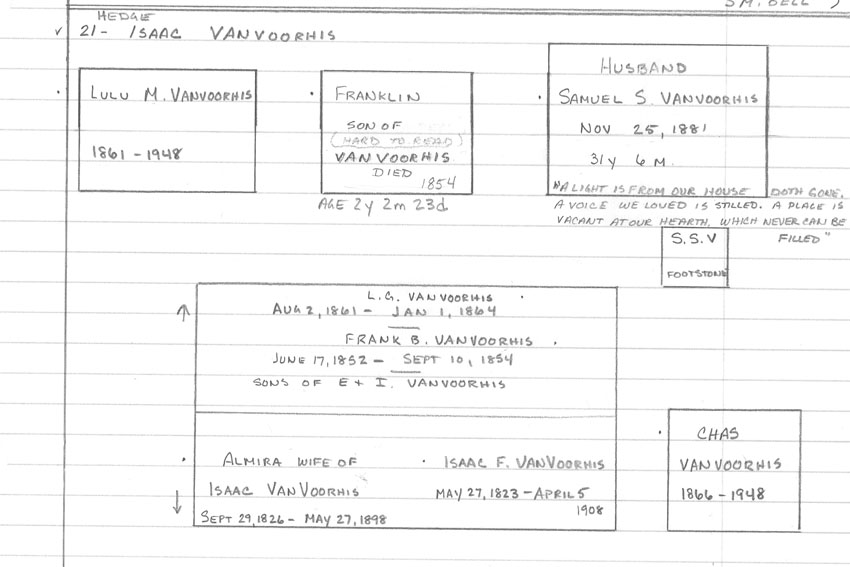 SM. BELL )
HEDGE
v 21- ISAAC VANVOORHIS
LULU M. VANVOORHIS
1861 - 1948
FRANKLIN
SON OF
(HARD TO READ)
VANVOORHIS
DIED
1854
AGE 2y 2m 23d.
HUSBAND
SAMUEL S. VANVOORHIS
NOV 25, 1881
31y 6 M.
"A LIGHT IS FROM OUR HOUSE DOTH GONE,
A VOICE WE LOVED IS STILLED. A PLACE IS
VACANT AT OUR HEARTH, WHICH NEVER CAN BE
FILLED"
S.S.V
FOOTSTONE
L.G. VANVOORHIS
AUG 2, 1861 - JAN 1, 1864
FRANK B. VANVOORHIS
JUNE 17, 1852 - SEPT 10, 1854
SONS OF E + I. VANVOORHIS
ALMIRA WIFE OF
ISAAC VANVOORHIS
SEPT 29, 1826 - MAY 27, 1898
ISAAC F. VANVOORHIS
MAY 27, 1823 - APRIL 5
1908
CHAS
VANVOORHIS
1866 - 1948